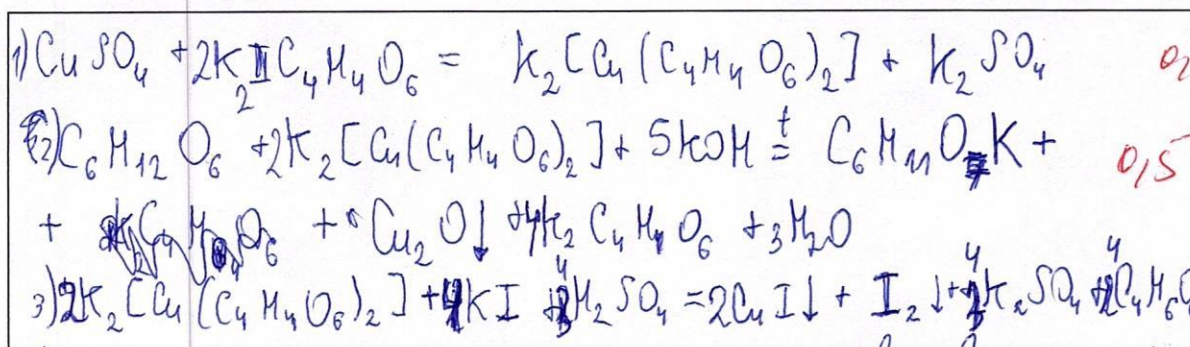 1) CuSO4 + 2K2C4H4O6 = K2[Cu(C4H4O6)2] + K2SO4 0,
2) C6H12O6 + 2K2[Cu(C4H4O6)2] + 5KOH t= C6H11O7K + 0,5
+ Cu2O↓ + 4K2C4H4O6 + 3H2O
3) 2K2[Cu(C4H4O6)2] + 4KI + 4H2SO4 = 2CuI↓ + I2↓ + 4K2SO4 + 4C4H6O